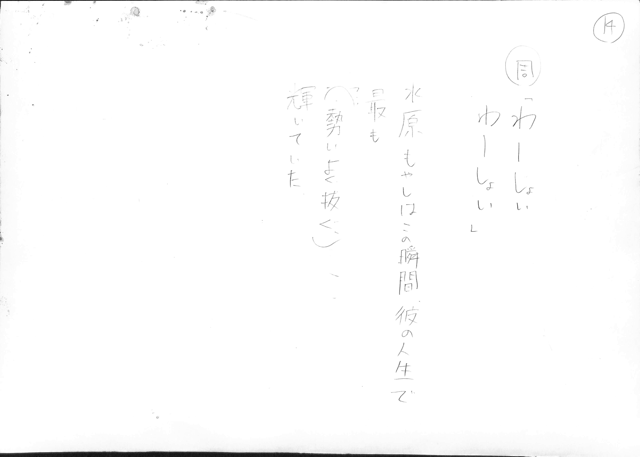 14
同「わーしょい
わーしょい」
水原もやしはこの瞬間、彼の人生で
最も
(勢いよく抜く)
輝いていた